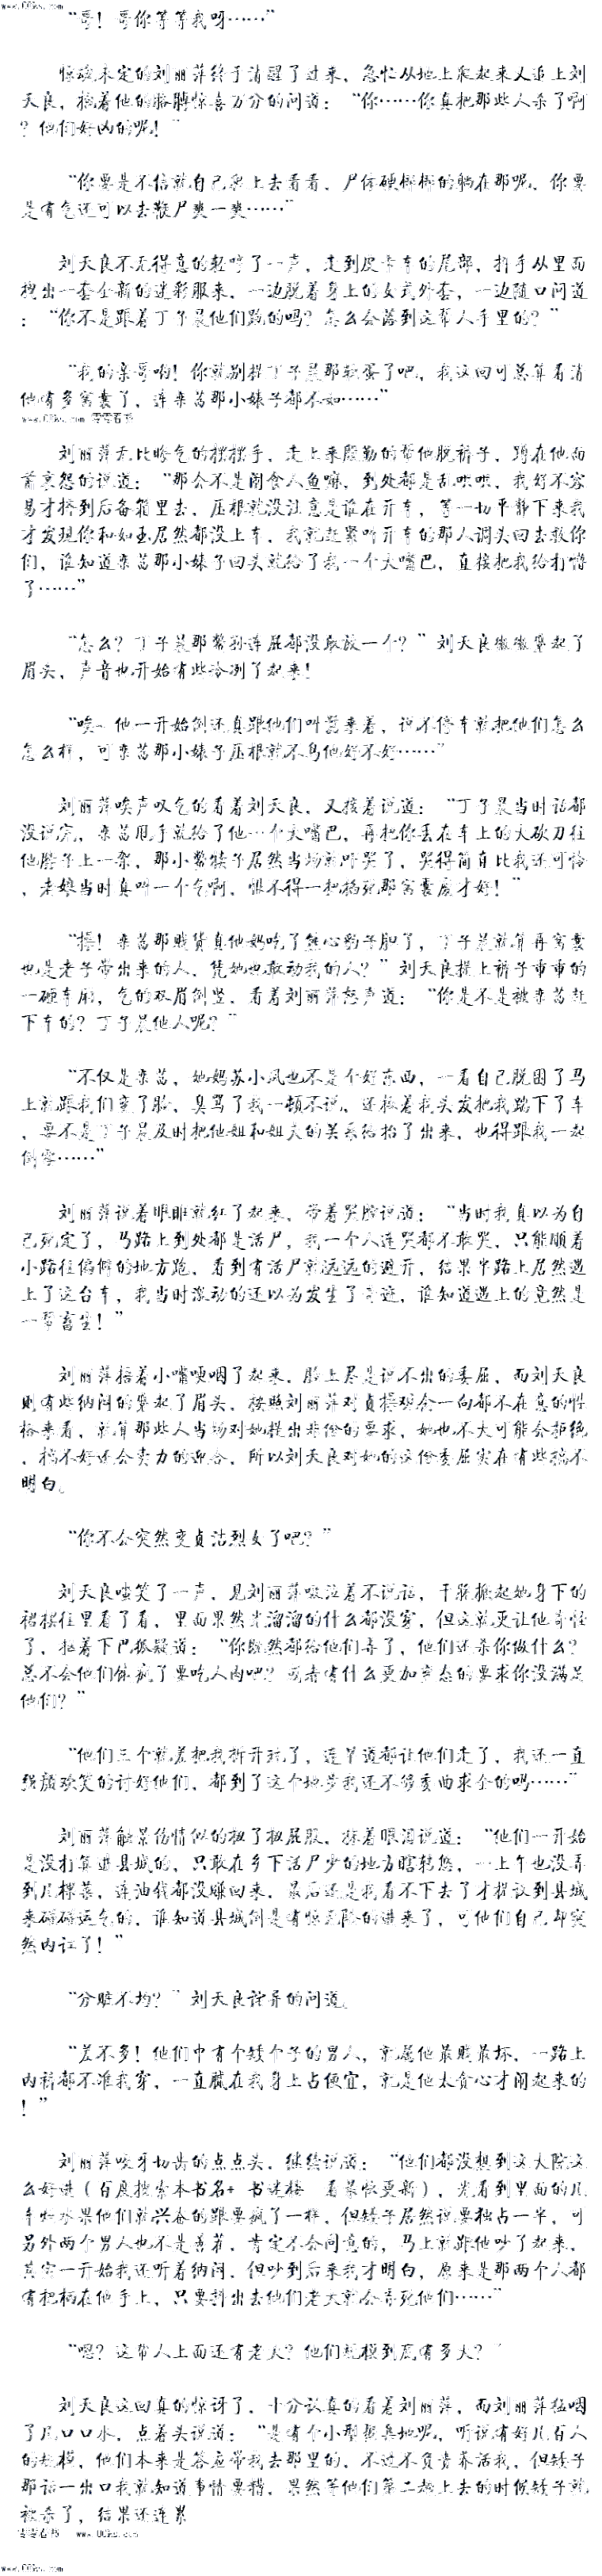 www.00ks.com
“哥！哥你等等我呀……”
惊魂未定的刘丽萍终于清醒了过来，急忙从地上爬起来又追上刘
天良，搂着他的胳膊惊喜万分的问道：“你……你真把那些人杀了啊
？他们好凶的呢！”
“你要是不信就自己爬上去看看，尸体硬梆梆的躺在那呢，你要
是有气还可以去鞭尸爽一爽……”
刘天良不无得意的轻哼了一声，走到皮卡车的尾部，抖手从里面
拽出一套全新的迷彩服来，一边脱着身上的女式外套，一边随口问道
：“你不是跟着丁子晨他们跑的吗？怎么会落到这帮人手里的？”
“我的亲哥哟！你就别提丁子晨那软蛋了吧，我这回可总算看清
他有多窝囊了，连栾茜那小婊子都不如……”
www.00ks.com 零零看书
刘丽萍无比晦气的摆摆手，走上来殷勤的帮他脱裤子，蹲在他面
前哀怨的说道：“那会不是闹食人鱼嘛，到处都是乱哄哄，我好不容
易才挤到后备箱里去，压根就没注意是谁在开车，等一切平静下来我
才发现你和如玉居然都没上车，我就赶紧叫开车的那人调头回去救你
们，谁知道栾茜那小婊子回头就给了我一个大嘴巴，直接把我给打懵
了……”
“怎么？丁子晨那帮孙连屁都没敢放一个？”刘天良微微皱起了
眉头，声音也开始有些冷冽了起来！
“唉~他一开始倒还真跟他们叫嚣来着，说不停车就把他们怎么
怎么样，可栾茜那小婊子压根就不鸟他好不好……”
刘丽萍唉声叹气的看着刘天良，又接着说道：“丁子晨当时话都
没说完，栾茜甩手就给了他一个大嘴巴，再把你丢在车上的大砍刀往
他脖子上一架，那小瘪犊子居然当场就吓哭了，哭得简直比我还可怜
，老娘当时真叫一个气啊，恨不得一把掐死那窝囊废才好！”
“操！栾茜那贱货真他妈吃了熊心豹子胆了，丁子晨就算再窝囊
也是老子带出来的人，凭她也敢动我的人？”刘天良提上裤子重重的
一砸车厢，气的双眉倒竖，看着刘丽萍怒声道：“你是不是被栾茜赶
下车的？丁子晨他人呢？”
“不仅是栾茜，她妈苏小凤也不是个好东西，一看自己脱困了马
上就跟我们变了脸，臭骂了我一顿不说，还揪着我头发把我踹下了车
，要不是丁子晨及时把他姐和姐夫的关系给抬了出来，也得跟我一起
倒霉……”
刘丽萍说着眼眶就红了起来，带着哭腔说道：“当时我真以为自
己死定了，马路上到处都是活尸，我一个人连哭都不敢哭，只能顺着
小路往偏僻的地方跑，看到有活尸就远远的避开，结果半路上居然遇
上了这台车，我当时激动的还以为发生了奇迹，谁知道遇上的竟然是
一帮畜生！”
刘丽萍捂着小嘴哽咽了起来，脸上尽是说不出的委屈，而刘天良
则有些纳闷的皱起了眉头，按照刘丽萍对贞操观念一向都不在意的性
格来看，就算那些人当场对她提出非份的要求，她也不大可能会拒绝
，搞不好还会卖力的迎合，所以刘天良对她的这份委屈实在有些搞不
明白。
“你不会突然变贞洁烈女了吧？”
刘天良嗤笑了一声，见刘丽萍啜泣着不说话，干脆掀起她身下的
裙摆往里看了看，里面果然光溜溜的什么都没穿，但这就更让他奇怪
了，抠着下巴狐疑道：“你既然都给他们弄了，他们还杀你做什么？
总不会他们饿疯了要吃人肉吧？或者有什么更加变态的要求你没满足
他们？”
“他们三个就差把我拆开玩了，连旱道都让他们走了，我还一直
强颜欢笑的讨好他们，都到了这个地步我还不够委曲求全的吗……”
刘丽萍触景伤情似的扭了扭屁股，抹着眼泪说道：“他们一开始
是没打算进县城的，只敢在乡下活尸少的地方瞎转悠，一上午也没弄
到几棵菜，连油钱都没赚回来，最后还是我看不下去了才提议到县城
来碰碰运气的，谁知道县城倒是有惊无险的进来了，可他们自己却突
然内讧了！”
“分赃不均？”刘天良诧异的问道。
“差不多！他们中有个矮个子的男人，就属他最贱最坏，一路上
内裤都不准我穿，一直腻在我身上占便宜，就是他太贪心才闹起来的
！”
刘丽萍咬牙切齿的点点头，继续说道：“他们都没想到这大院这
么好进（百度搜索本书名+ 书迷楼 看最快更新），光看到里面的几
车烂水果他们就兴奋的跟要疯了一样，但矮子居然说要独占一半，可
另外两个男人也不是善茬，肯定不会同意的，马上就跟他吵了起来，
其实一开始我还听着纳闷，但吵到后来我才明白，原来是那两个人都
有把柄在他手上，只要抖出去他们老大就会弄死他们……”
“嗯？这帮人上面还有老大？他们规模到底有多大？”
刘天良这回真的惊讶了，十分认真的看着刘丽萍，而刘丽萍猛咽
了几口口水，点着头说道：“是有个小型聚集地呢，听说有好几百人
的规模，他们本来是答应带我去那里的，不过不负责养活我，但矮子
那话一出口我就知道事情要糟，果然等他们第二趟上去的时候矮子就
被杀了，结果还连累
零零看书 www.00ks.com
www.00ks.com